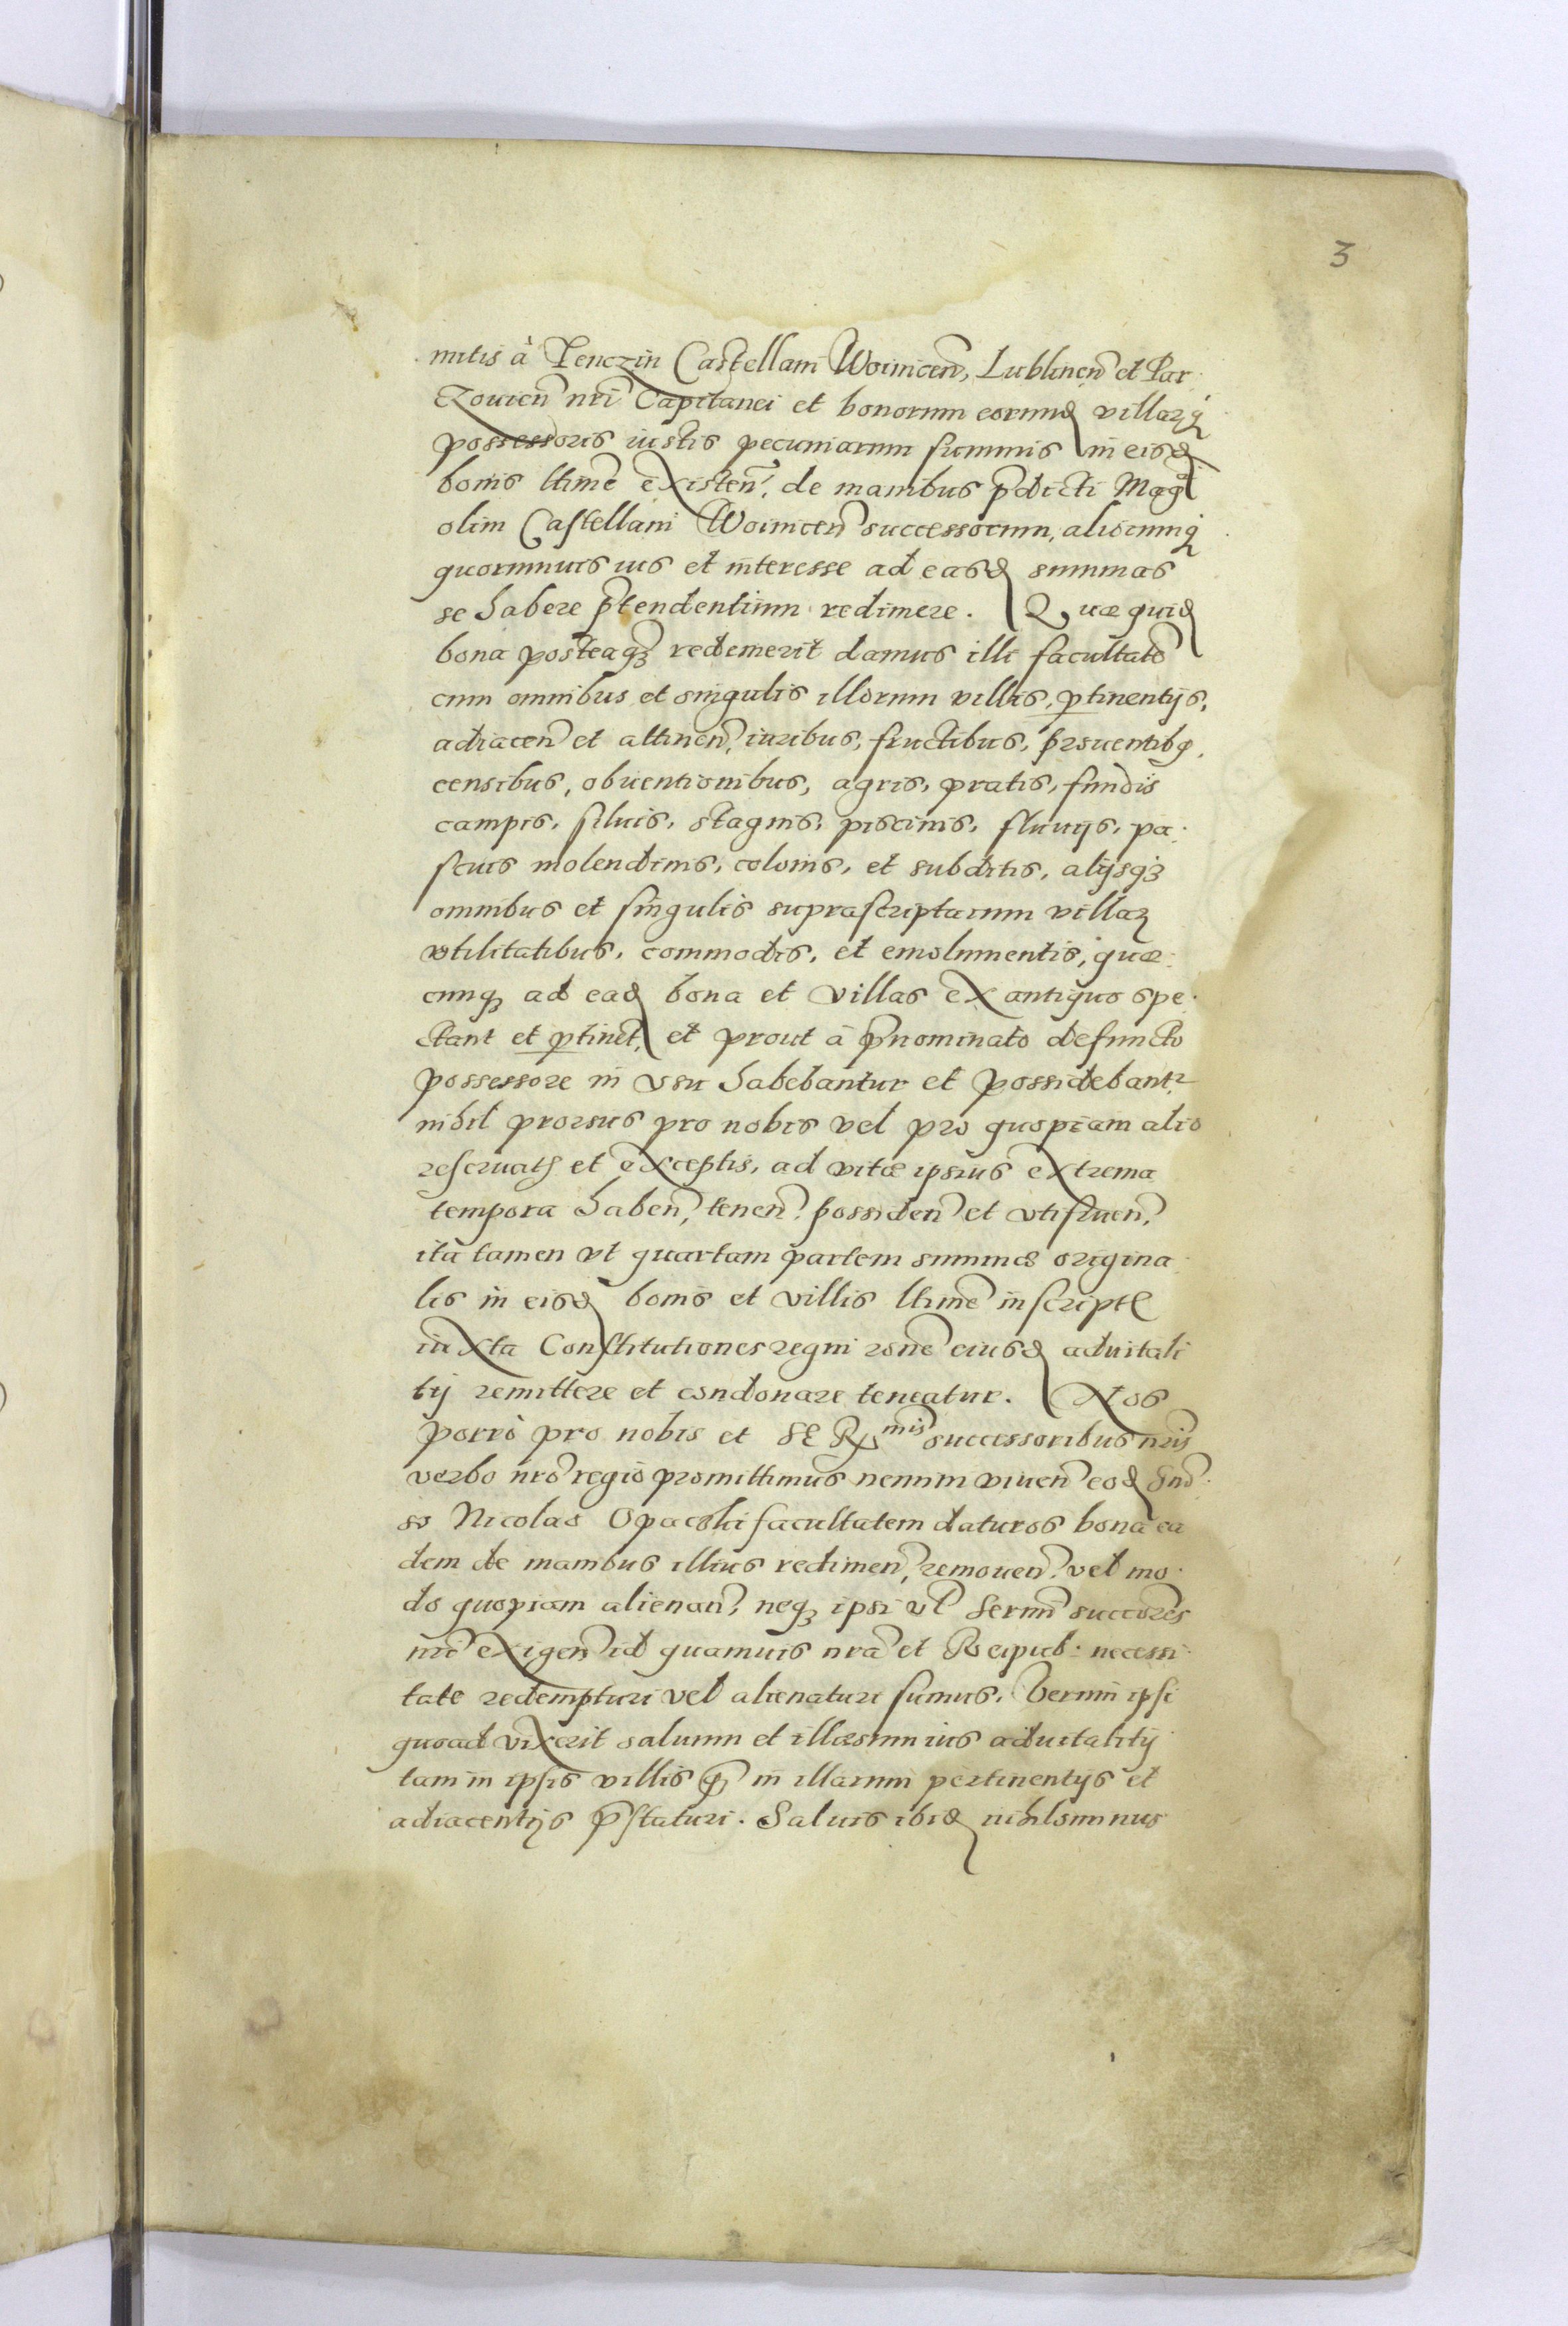 3
mitis à Tenczin Castellani Woinicen̄, Lublinen̄ et Par
czouien̄ nr̄i Capitanei et bonorum eorund̄ villarq́
possessoris iustis pecuniarum summis in eisd̄
bonis ltime existen̄, de manibus p̄dicti Mag
olim Castellani Woinicen̄ successorum, aliorumq́
quorumuis ius et interesse ad easd̄ summas
se habere p̄tendentium redimere. Quæ quid̄
bona posteaqȝ redemerit damus illi facultatē
cum omnibus et singulis illorum villis, ptinentijs,
adiacen̄ et attinen̄, iuribus, fructibus, prouentibq,
censibus, obuentionibus, agris, pratis, fundis
campis, siluis, stagnis, piscinis, fluuijs, pa
scuis molendinis, colonis, et subditis, alijsqȝ
omnibus et singulis suprascriptarum villaꝝ
vtilitatibus, commodis, et emolumentis, quæ
cunqȝ ad ead̄ bona et villas ex antiquo spe
ctant et ptinet, et prout à p̄nominato defuncto
possessore in vsu habebantur et possidebantr
nihil prorsus pro nobis vel pro quopiam alio
reseruatis et exceptis, ad vitæ ipsius extrema
tempora haben̄, tenen̄, possiden̄ et vtifruen̄,
ita tamen vt quartam partem summæ origina
lis in eisd̄ bonis et villis ltime inscriptę
iuxta Constitutiones regni rōne eiusd̄ aduitali
tij remittere et condonare teneatur. Nos
porrò pro nobis et SE Rmis successoribus nr̄is
verbo nr̄o regio promittimus nemini viuen̄ eod̄ Gn̄o
so Nicolao Opacski facultatem daturos bona ea
dem de manibus illius redimen̄, remouen̄, vel mo
do quopiam alienan̄, neqȝ ipsi vl Sermi succores
nr̄i exigen̄ id quamuis nr̄a et Reipub. necessi
tate redempturi vel alienaturi sumus, Verum ipsi
quoad vixerit saluum et illæsum ius aduitalitij
tam in ipsis villis q̄ in illarum pertinentijs et
adiacentijs p̄staturi. Saluis ibid̄ nihilominus